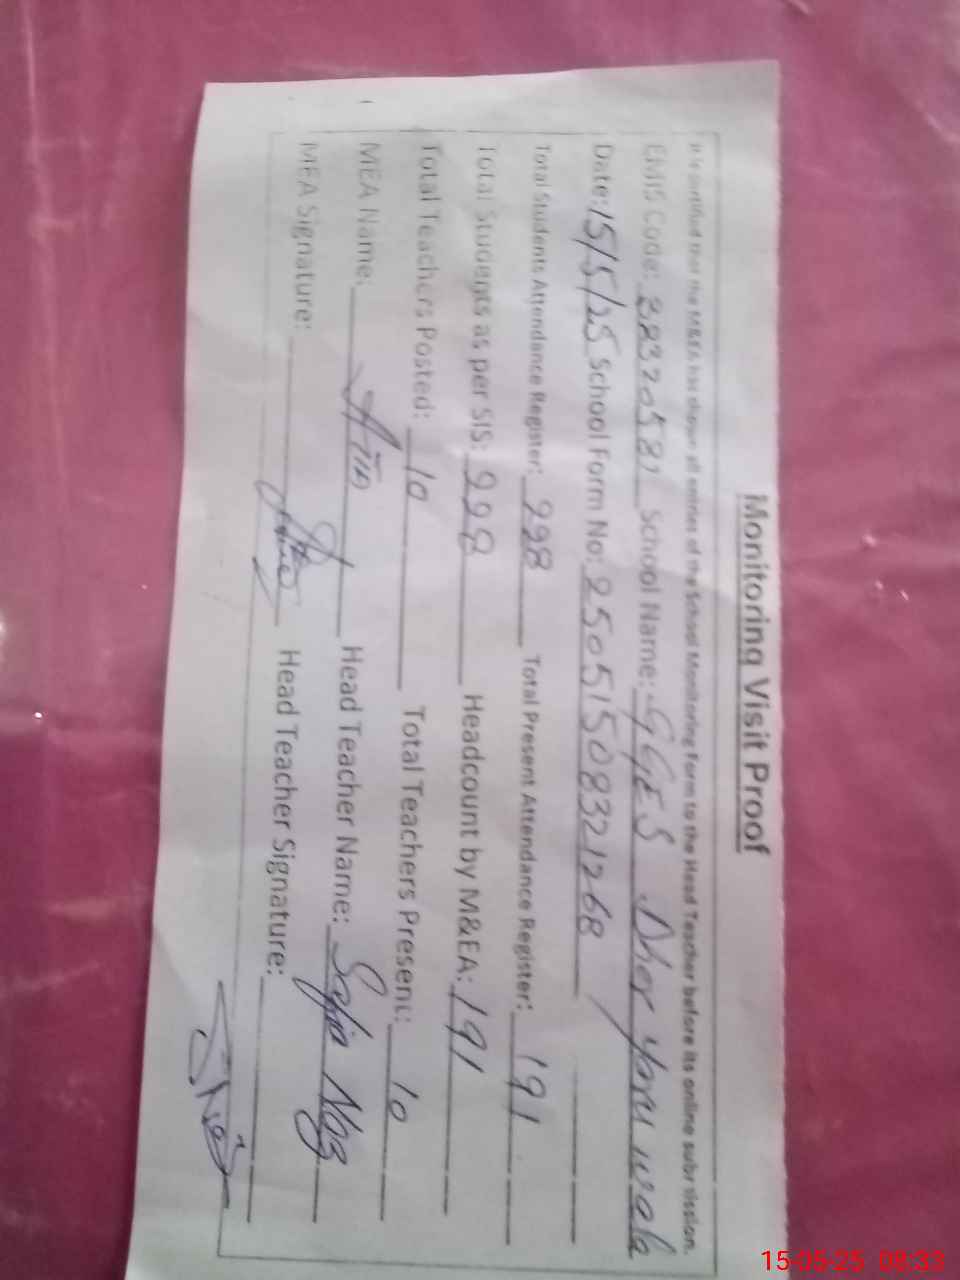 Monitoring Visit Proof
It is certified that the M&EA has shown all entries of the School Monitoring Form to the Head Teacher before its online submission.
EMIS Code: 38320581 School Name: GGES Dher
Date: 15/5/25 School Form No: 25051508321268
Total Students Attendance Register: 228 Total Present Attendance Register: 191
Total Students as per SIS: 228 Headcount by M&EA: 191
Total Teachers Posted: 10 Total Teachers Present: 10
MEA Name: Head Teacher Name: Safia Naz
MEA Signature: Head Teacher Signature:
15-05-25 08:33